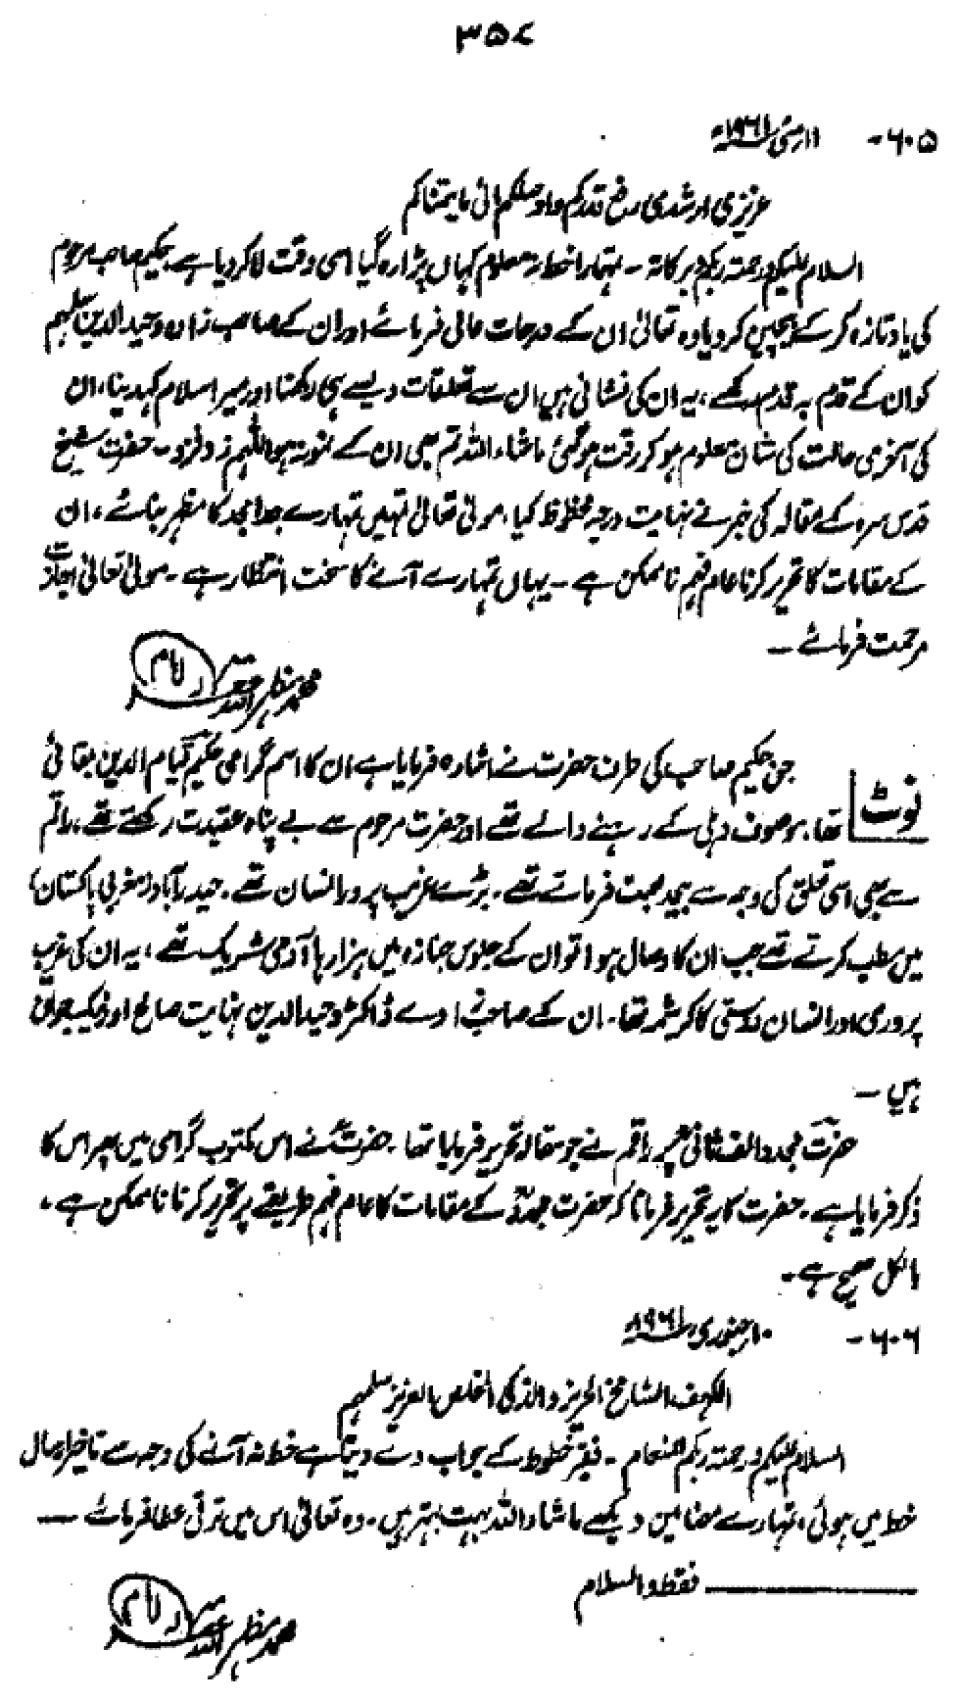 ۳۵۷
۶۰۵- ۱۱ر مئی ۱۹۶۱ء
عزیزی ارشدی رفع قدرکم واوصلکم الی مایتمناکم
السلام علیکم ورحمۃ ربکم وبرکاتہ ۔ تمہارا خط نہ معلوم کہاں پڑا رہ گیا اسی وقت لا کر دیا ہے، حکیم صاحب مرحوم
کی یاد تازہ کر کے بیچین کر دیا وہ تعالیٰ ان کے درجات عالی فرمائے اور ان کے صاحب زادہ وحید الدین سلمہم
کو ان کے قدم بہ قدم رکھے، یہ ان کی نشانی ہیں ان سے تعلقات ویسے ہی رکھنا اور میرا سلام کہدینا، ان
کی آخری حالت کی شان معلوم ہو کر رقت ہو گئی ماشاء اللہ تم بھی ان کے نمونہ ہو اللہم زد فزد۔ حضرت شیخ
قدس سرہ کے مقالہ کی خبر نے نہایت درجہ محظوظ کیا، مولیٰ تعالیٰ تمہیں تمہارے جد امجد کا مظہر بنائے، ان
کے مقامات کا تحریر کرنا عام فہم ناممکن ہے ۔ یہاں تمہارے آنے کا سخت انتظار ہے ۔ مولیٰ تعالیٰ اجازت
مرحمت فرمائے ۔
محمد مظہر اللہ غفرلہ امام
نوٹ جن حکیم صاحب کی طرف حضرت نے اشارہ فرمایا ہے ان کا اسم گرامی حکیم قیام الدین بقائی
تھا، موصوف دہلی کے رہنے والے تھے اور حضرت مرحوم سے بے پناہ عقیدت رکھتے تھے، راقم
سے بھی اسی تعلق کی وجہ سے بیحد محبت فرماتے تھے ۔ بڑے غریب پرور انسان تھے ۔ حیدرآباد (مغربی پاکستان)
میں مطب کرتے تھے جب ان کا وصال ہوا تو ان کے جلوس جنازہ میں ہزارہا آدمی شریک تھے، یہ ان کی غریب
پروری اور انسان دوستی کا کرشمہ تھا ۔ ان کے صاحبزادے ڈاکٹر وحید الدین نہایت صالح اور نیک جوان
ہیں ۔
حضرت مجدد الف ثانی پر راقم نے جو مقالہ تحریر فرمایا تھا ۔ حضرت نے اس مکتوب گرامی میں پھر اس کا
ذکر فرمایا ہے ۔ حضرت کا یہ تحریر فرمانا کہ حضرت مجدد کے مقامات کا عام فہم طریقے پر تحریر کرنا ناممکن ہے ،
بالکل صحیح ہے ۔
۶۰۶- ۱۰ر جنوری ۱۹۶۱ء
الکہف الشامخ الحریز والذکی اخلص العزیز سلمہم
السلام علیکم ورحمۃ ربکم المنعام ۔ فقیر خطوط کے جواب دے دیتا ہے خط نہ آنے کی وجہ سے تاخیر ارسال
خط میں ہوئی، تمہارے مضامین دیکھے ماشاء اللہ بہت بہتر ہیں ۔ وہ تعالیٰ اس میں ترقی عطا فرمائے —
فقط والسلام
محمد مظہر اللہ غفرلہ امام